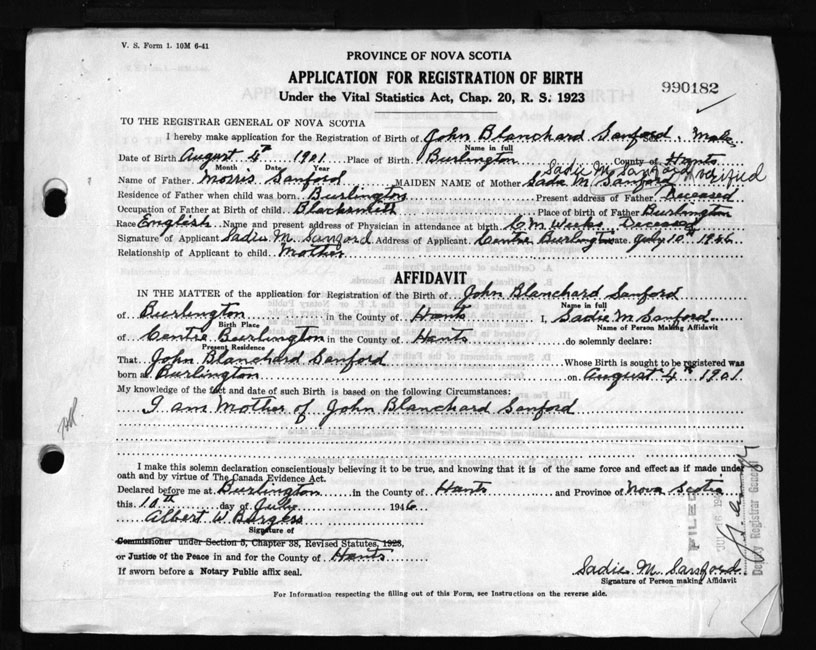 V. S. Form 1. 10M 6-41
PROVINCE OF NOVA SCOTIA
APPLICATION FOR REGISTRATION OF BIRTH
990182
Under the Vital Statistics Act, Chap. 20, R. S. 1923
TO THE REGISTRAR GENERAL OF NOVA SCOTIA
I hereby make application for the Registration of Birth of John Blanchard Sanford Sex Male
Name in full
Date of Birth August 4th 1901 Place of Birth Burlington County of Hants
Month Date Year
Sadie M Sanford
Name of Father Morris Sanford MAIDEN NAME of Mother Sadie M Sanford
Residence of Father when child was born Burlington Present address of Father Deceased
Occupation of Father at Birth of child Blacksmith Place of birth of Father Burlington
Race English Name and present address of Physician in attendance at birth C M Weeks Deceased
Signature of Applicant Sadie M. Sanford Address of Applicant Centre Burlington Date July 10th 1946
Relationship of Applicant to child Mother
AFFIDAVIT
IN THE MATTER of the application for Registration of the Birth of John Blanchard Sanford
Name in full
of Burlington in the County of Hants I, Sadie M Sanford
Birth Place Name of Person Making Affidavit
of Centre Burlington in the County of Hants do solemnly declare:
Present Residence
That John Blanchard Sanford Whose Birth is sought to be registered was
born at Burlington on August 4th 1901
My knowledge of the fact and date of such Birth is based on the following Circumstances:
I am Mother of John Blanchard Sanford
I make this solemn declaration conscientiously believing it to be true, and knowing that it is of the same force and effect as if made under
oath and by virtue of The Canada Evidence Act.
Declared before me at Burlington in the County of Hants and Province of Nova Scotia
this 10th day of July 1946
Albert W Burgess
Signature of
Commissioner under Section 5, Chapter 38, Revised Statutes, 1923,
or Justice of the Peace in and for the County of Hants
If sworn before a Notary Public affix seal.
Sadie M. Sanford
Signature of Person making Affidavit
For Information respecting the filling out of this Form, see Instructions on the reverse side.
FILED
Deputy Registrar General